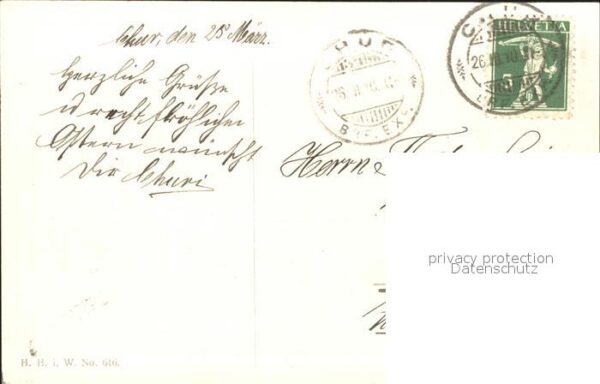 Chur, den 25. März.
Herzliche Grüße
u recht fröhliche
Ostern wünscht
Dir Churi
CHUR
BRF. EX.
CHUR
26. III. 10.
HELVETIA
5
Herrn
privacy protection
Datenschutz
H. H. i. W. No. 616.